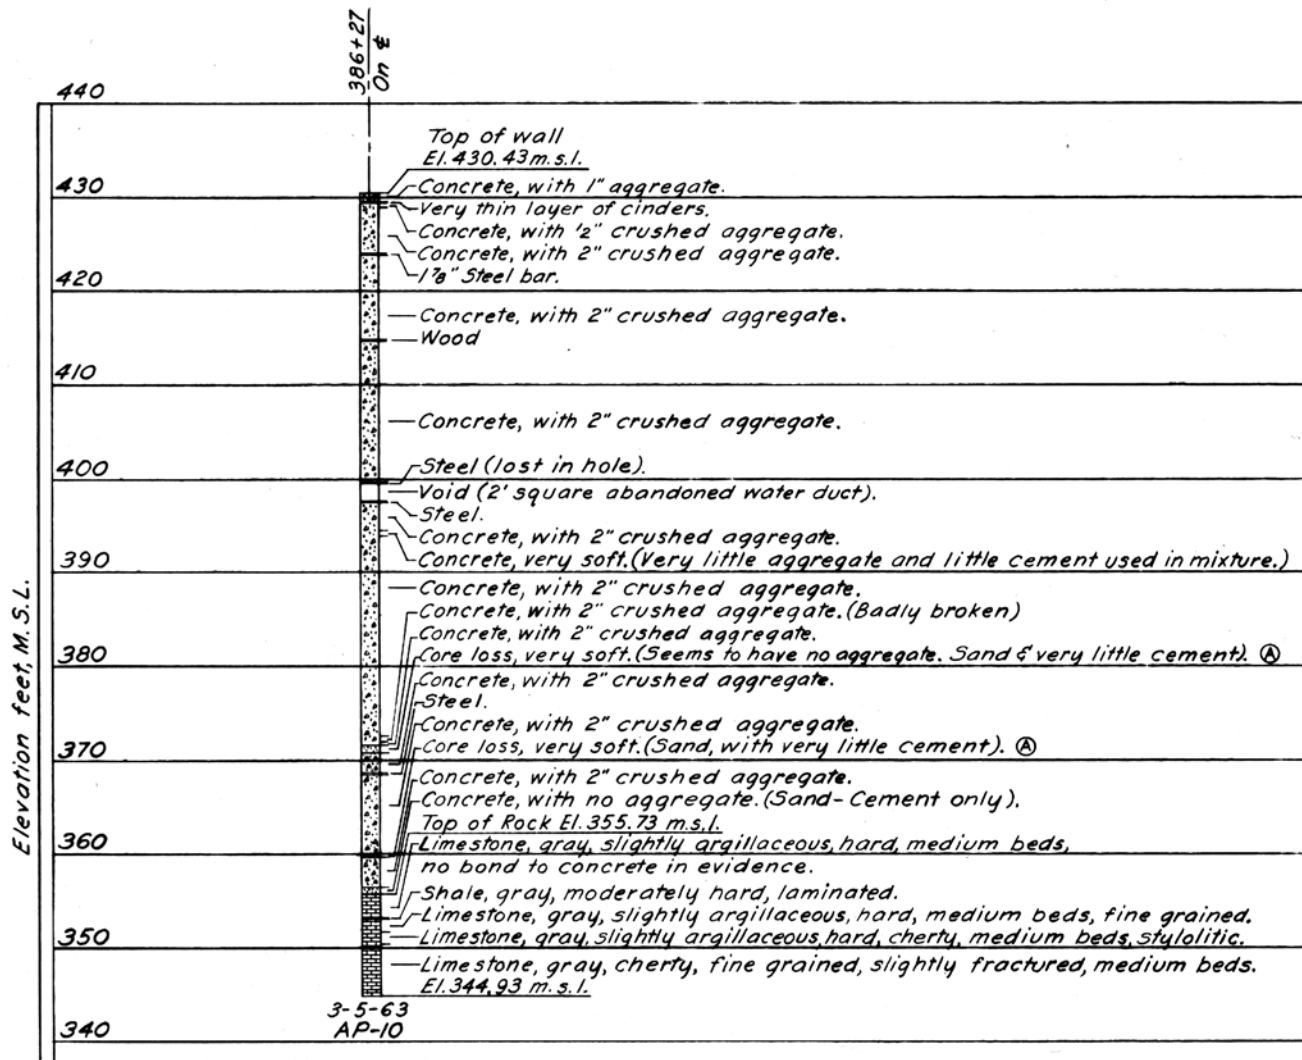 386+27
On ℄
440
Top of wall
El. 430.43 m.s.l.
430
Concrete, with 1" aggregate.
Very thin layer of cinders.
Concrete, with 1/2" crushed aggregate.
Concrete, with 2" crushed aggregate.
1 7/8" Steel bar.
420
Concrete, with 2" crushed aggregate.
Wood
410
Concrete, with 2" crushed aggregate.
400
Steel (lost in hole).
Void (2' square abandoned water duct).
Steel.
Concrete, with 2" crushed aggregate.
Concrete, very soft. (Very little aggregate and little cement used in mixture.)
390
Concrete, with 2" crushed aggregate.
Concrete, with 2" crushed aggregate. (Badly broken)
Concrete, with 2" crushed aggregate.
380
Core loss, very soft. (Seems to have no aggregate. Sand & very little cement). Ⓐ
Concrete, with 2" crushed aggregate.
Steel.
Concrete, with 2" crushed aggregate.
370
Core loss, very soft. (Sand, with very little cement). Ⓐ
Concrete, with 2" crushed aggregate.
Concrete, with no aggregate. (Sand-Cement only).
Top of Rock El. 355.73 m.s.l.
360
Limestone, gray, slightly argillaceous, hard, medium beds,
no bond to concrete in evidence.
Shale, gray, moderately hard, laminated.
Limestone, gray, slightly argillaceous, hard, medium beds, fine grained.
350
Limestone, gray, slightly argillaceous, hard, cherty, medium beds, stylolitic.
Limestone, gray, cherty, fine grained, slightly fractured, medium beds.
El. 344.93 m.s.l.
3-5-63
AP-10
340
Elevation feet, M.S.L.